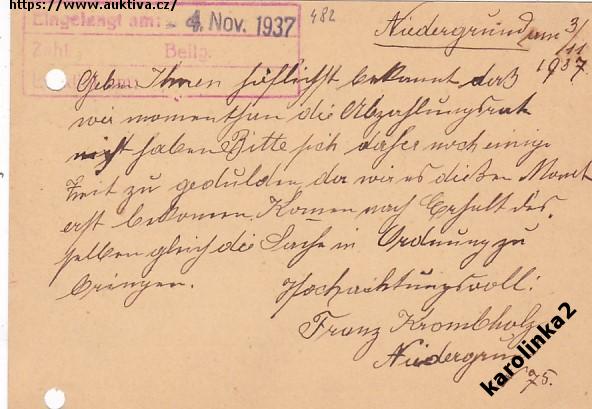 https://www.auktiva.cz/
Eingelangt am: - 4. Nov. 1937
Zahl Beilg.
482
Niedergrund am 3/11
1937
Geben Ihnen höflichst bekannt daß
wir momenthan die Abzahlungsrate
nicht haben Bitte sich daher noch einige
Zeit zu gedulden da wir es dießen Monat
erst bekomen. Komen nach Erhalt des
selben gleich die Sache in Ordnung zu
bringen.
Hochachtungsvoll:
Franz Krombholz
Niedergrund
N 75.
karolinka2